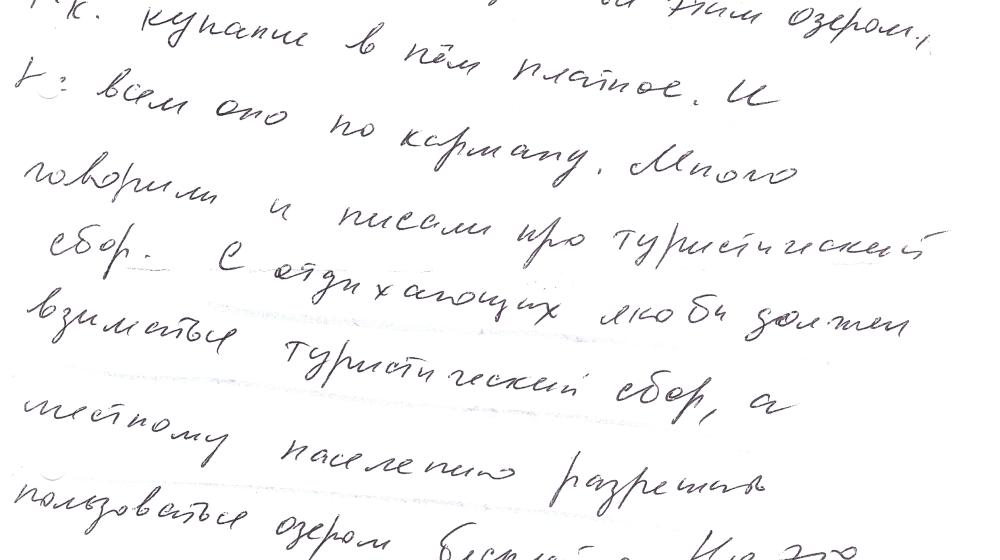 этим озером,
т.к. купание в нём платное. И
всем оно по карману. Много
говорили и писали про туристический
сбор. С отдыхающих якобы должен
взиматься туристический сбор, а
местному населению разрешать
пользоваться озером